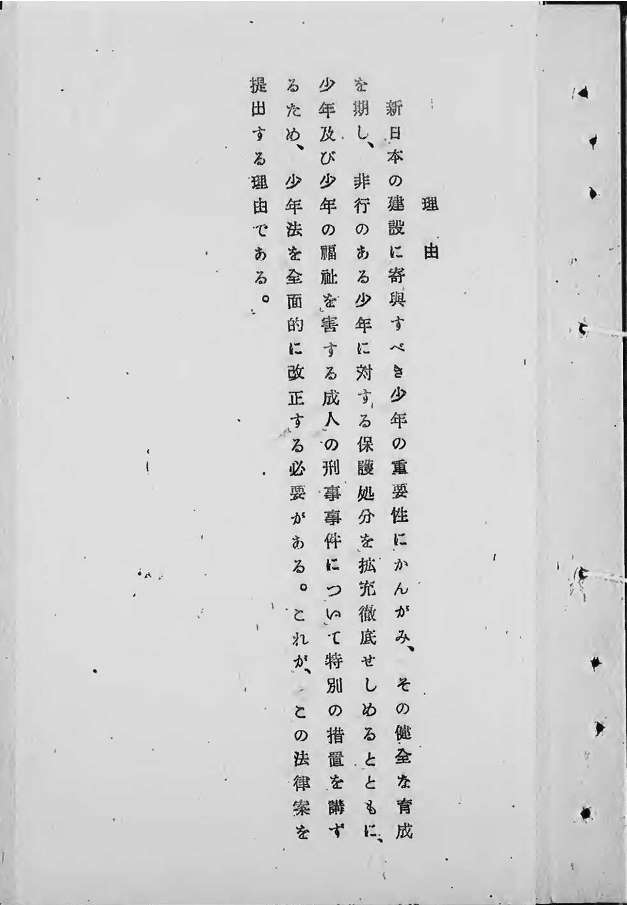 理由
新日本の建設に寄與すべき少年の重要性にかんがみ、その健全な育成
を期し、非行のある少年に対する保護処分を拡充徹底せしめるとともに、
少年及び少年の福祉を害する成人の刑事事件について特別の措置を講ず
るため、少年法を全面的に改正する必要がある。これが、この法律案を
提出する理由である。